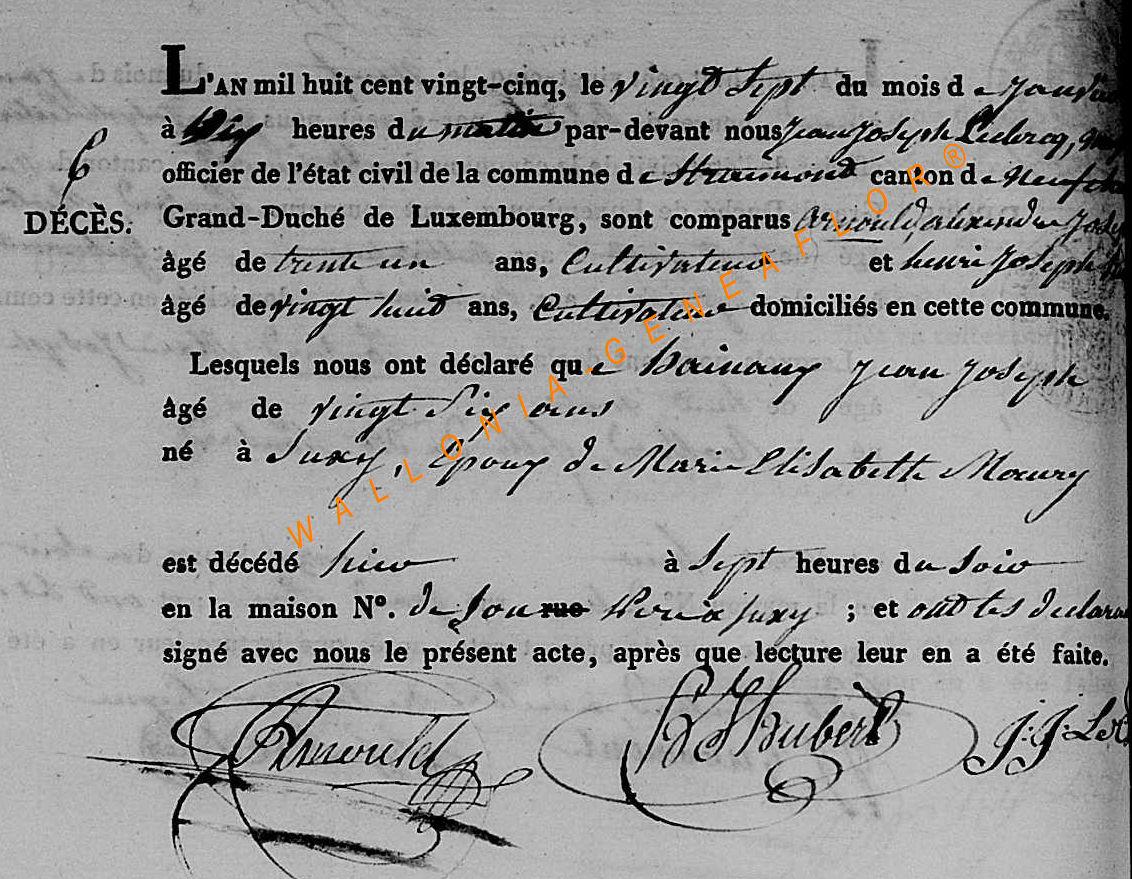 L'AN mil huit cent vingt-cinq, le vingt Sept du mois de Janvier
à Dix heures du matin par-devant nous Jean Joseph Leclercq,
officier de l'état civil de la commune de Straimond canton de Neufch
6
DÉCÈS.
Grand-Duché de Luxembourg, sont comparus Arnould, alexandre Jose
âgé de trente un ans, Cultivateur et henri Joseph
âgé de vingt huit ans, Cultivateur domiciliés en cette commune.
Lesquels nous ont déclaré que hainaux Jean Joseph
âgé de vingt Six ans
né à Suxy, Epoux de Marie Elisabette Maury
est décédé hier à Sept heures du Soir
en la maison N°. de Son rue Pere à Suxy ; et ont les declara
signé avec nous le présent acte, après que lecture leur en a été faite.
Arnould
H J Hubert
J: J: Le
WALLONIA-GENEAFLOR®